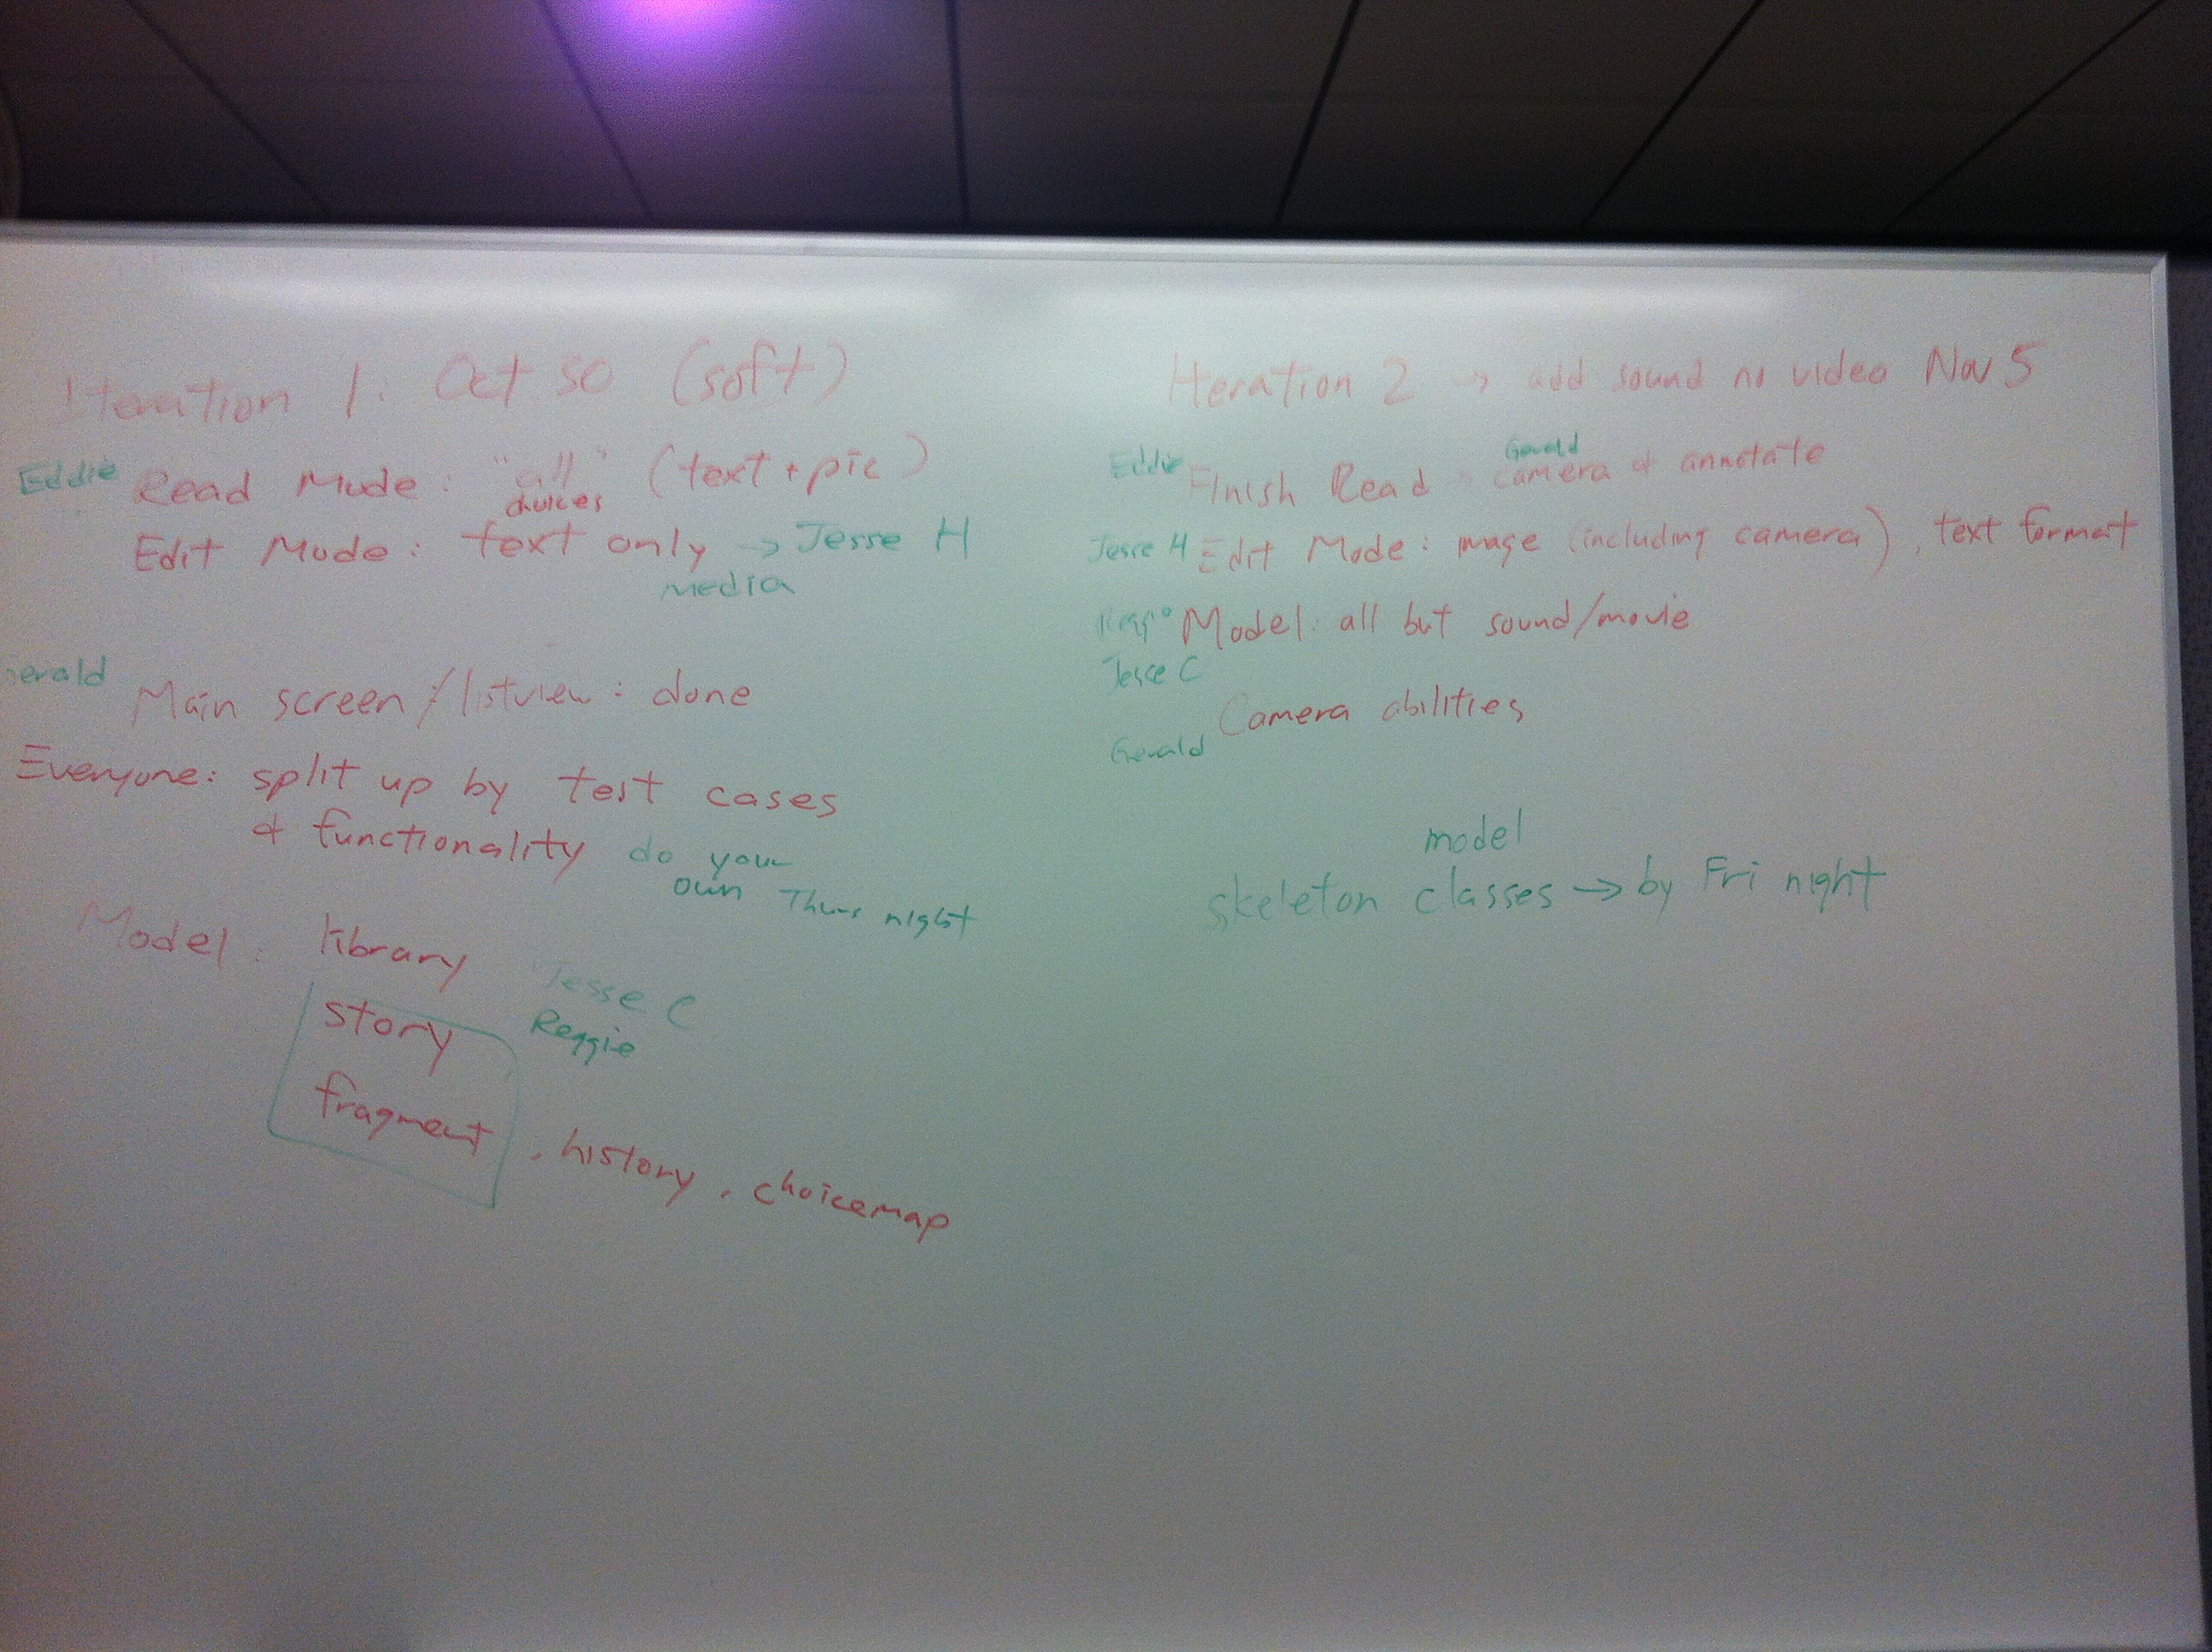 Iteration 1: Oct 30 (soft)
Eddie Read Mode: "all" (text + pic)
choices
Edit Mode: text only → Jesse H
media
erald
Main screen / listview: done
Everyone: split up by test cases
& functionality do your
own Thurs night
Model: library Jesse C
story Reggie
fragment, history, choicemap
Iteration 2 → add sound no video Nov 5
Gerald
Eddie Finish Read camera & annotate
Jesse H Edit Mode: image (including camera), text format
Model: all but sound/movie
Jesse C
Camera abilities
Gerald
model
skeleton classes → by Fri night